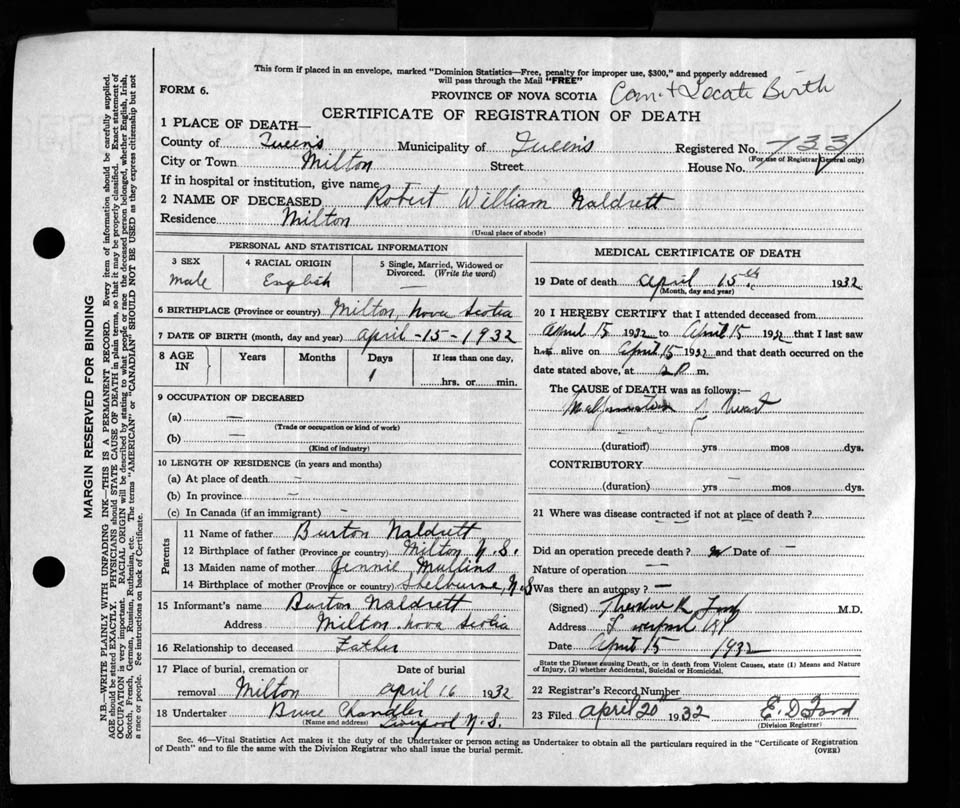 This form if placed in an envelope, marked "Dominion Statistics—Free, penalty for improper use, $300," and properly addressed
will pass through the Mail "FREE"
FORM 6.
PROVINCE OF NOVA SCOTIA Can't Locate Birth
CERTIFICATE OF REGISTRATION OF DEATH
1 PLACE OF DEATH—
County of Queen's Municipality of Queen's Registered No. 733
(For use of Registrar General only)
City or Town Milton Street House No.
If in hospital or institution, give name
2 NAME OF DECEASED Robert William Naldrett
Residence Milton
(Usual place of abode)
PERSONAL AND STATISTICAL INFORMATION
3 SEX 4 RACIAL ORIGIN 5 Single, Married, Widowed or Divorced. (Write the word)
male English —
6 BIRTHPLACE (Province or country) Milton, Nova Scotia
7 DATE OF BIRTH (month, day and year) April-15-1932
8 AGE IN Years Months Days If less than one day,
1 hrs. or min.
9 OCCUPATION OF DECEASED
(a) —
(Trade or occupation or kind of work)
(b) —
(Kind of industry)
10 LENGTH OF RESIDENCE (in years and months)
(a) At place of death –
(b) In province –
(c) In Canada (if an immigrant) –
Parents
11 Name of father Burton Naldrett
12 Birthplace of father (Province or country) Milton N.S.
13 Maiden name of mother Jennie Mullins
14 Birthplace of mother (Province or country) Shelburne, N.S
15 Informant's name Burton Naldrett
Address Milton Nova Scotia
16 Relationship to deceased Father
17 Place of burial, cremation or Date of burial
removal Milton April 16 1932
18 Undertaker Bruce Chandler
(Name and address) Liverpool N.S.
MEDICAL CERTIFICATE OF DEATH
19 Date of death April 15th 1932
(Month, day and year)
20 I HEREBY CERTIFY that I attended deceased from
April 15 1932 to April 15 1932 that I last saw
h alive on April 15 1932 and that death occurred on the
date stated above, at m.
The CAUSE of DEATH was as follows:—
Malformation of heart
(duration) yrs mos dys.
CONTRIBUTORY
(duration) yrs — mos dys.
21 Where was disease contracted if not at place of death?
Did an operation precede death? Date of —
Nature of operation —
Was there an autopsy? —
(Signed) Theodore R Ford M.D.
Address Liverpool NS
Date April 15 1932
State the Disease causing Death, or in death from Violent Causes, state (1) Means and Nature
of Injury, (2) whether Accidental, Suicidal or Homicidal.
22 Registrar's Record Number
23 Filed April 20th 1932 E. D Ford
(Division Registrar)
Sec. 46—Vital Statistics Act makes it the duty of the Undertaker or person acting as Undertaker to obtain all the particulars required in the "Certificate of Registration
of Death" and to file the same with the Division Registrar who shall issue the burial permit.
(OVER)
MARGIN RESERVED FOR BINDING
N.B.—WRITE PLAINLY WITH UNFADING INK—THIS IS A PERMANENT RECORD. Every item of information should be carefully supplied.
AGE should be stated EXACTLY. PHYSICIANS should STATE CAUSE OF DEATH in plain terms, so that it may be properly classified. Exact statement of
OCCUPATION is very important. RACIAL ORIGIN will be described by stating to what people or race the deceased person belonged, whether English, Irish,
Scotch, French, German, Russian, Ruthenian, etc. The terms "AMERICAN" or "CANADIAN" SHOULD NOT BE USED as they express citizenship but not
a race or people. See instructions on back of Certificate.